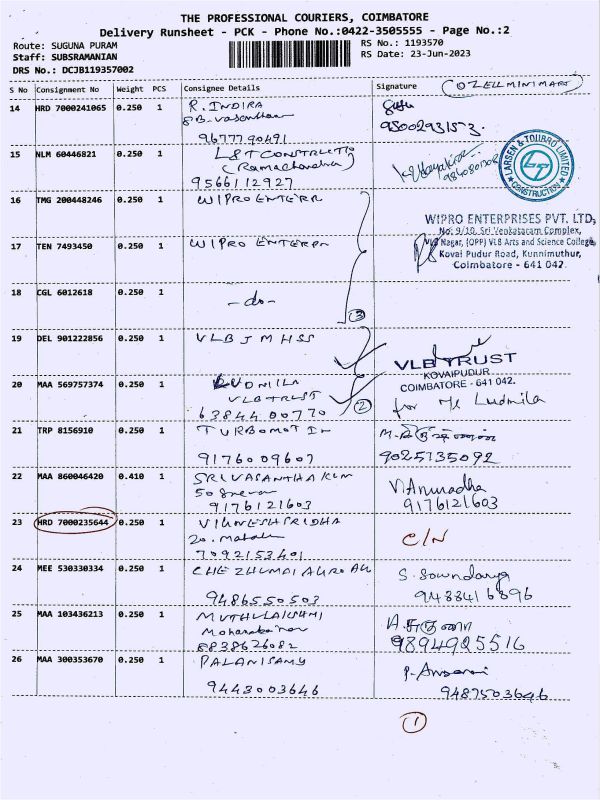 THE PROFESSIONAL COURIERS, COIMBATORE
Delivery Runsheet - PCK - Phone No.:0422-3505555 - Page No.:2
Route: SUGUNA PURAM
RS No.: 1193570
Staff: SUBSRAMANIAN
RS Date: 23-Jun-2023
DRS No.: DCJB119357002
S No Consignment No Weight PCS Consignee Details Signature
OZELL MINI MART
14 HRD 7000241065 0.250 1 R. INDIRA
9677790491 9500293153
15 NLM 60446821 0.250 1 L&T CONSTRUCTIO
(Ramachandra)
9566112927
LARSEN & TOUBRO LIMITED
CONSTRUCTION
16 TMG 200448246 0.250 1 WIPRO ENTERR
WIPRO ENTERPRISES PVT. LTD,
No: 9/10, Sri Venkataram Complex,
17 TEN 7493450 0.250 1 WIPRO ENTERPR
VLB Nagar, (OPP) VLB Arts and Science College,
Kovai Pudur Road, Kunnimuthur,
Coimbatore - 641 042.
18 CGL 6012618 0.250 1 -do-
3
19 DEL 901222856 0.250 1 VLB J M HSS
VLB TRUST
KOVAIPUDUR
COIMBATORE - 641 042.
20 MAA 569757374 0.250 1 LUDMILA
VLB TRUST
2
for Ludmila
6384400770
21 TRP 8156910 0.250 1 TURBOMOT IN
9176009607 9025135092
22 MAA 860046420 0.410 1 SRIVASANTHAKUM
9176121603
V. Anuradha
9176121603
23 HRD 7000235644 0.250 1 VIGNESHSRIDHA
7092153401
C/N
24 MEE 530330334 0.250 1 CHEZHUMAI AGRO AG
9486550503
S. Soundarya
9488416896
25 MAA 103436213 0.250 1 MUTHULAKSHMI
8838626082
9894925516
26 MAA 300353670 0.250 1 PALANISAMY
9443003646
9487503646
1